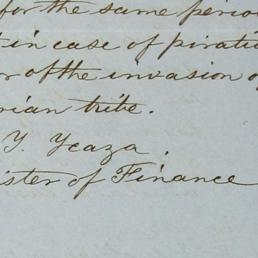 for the same perio
t in case of pirati
r of the invasion o
rian tribe.
Y. Ycaza.
ister of Finance